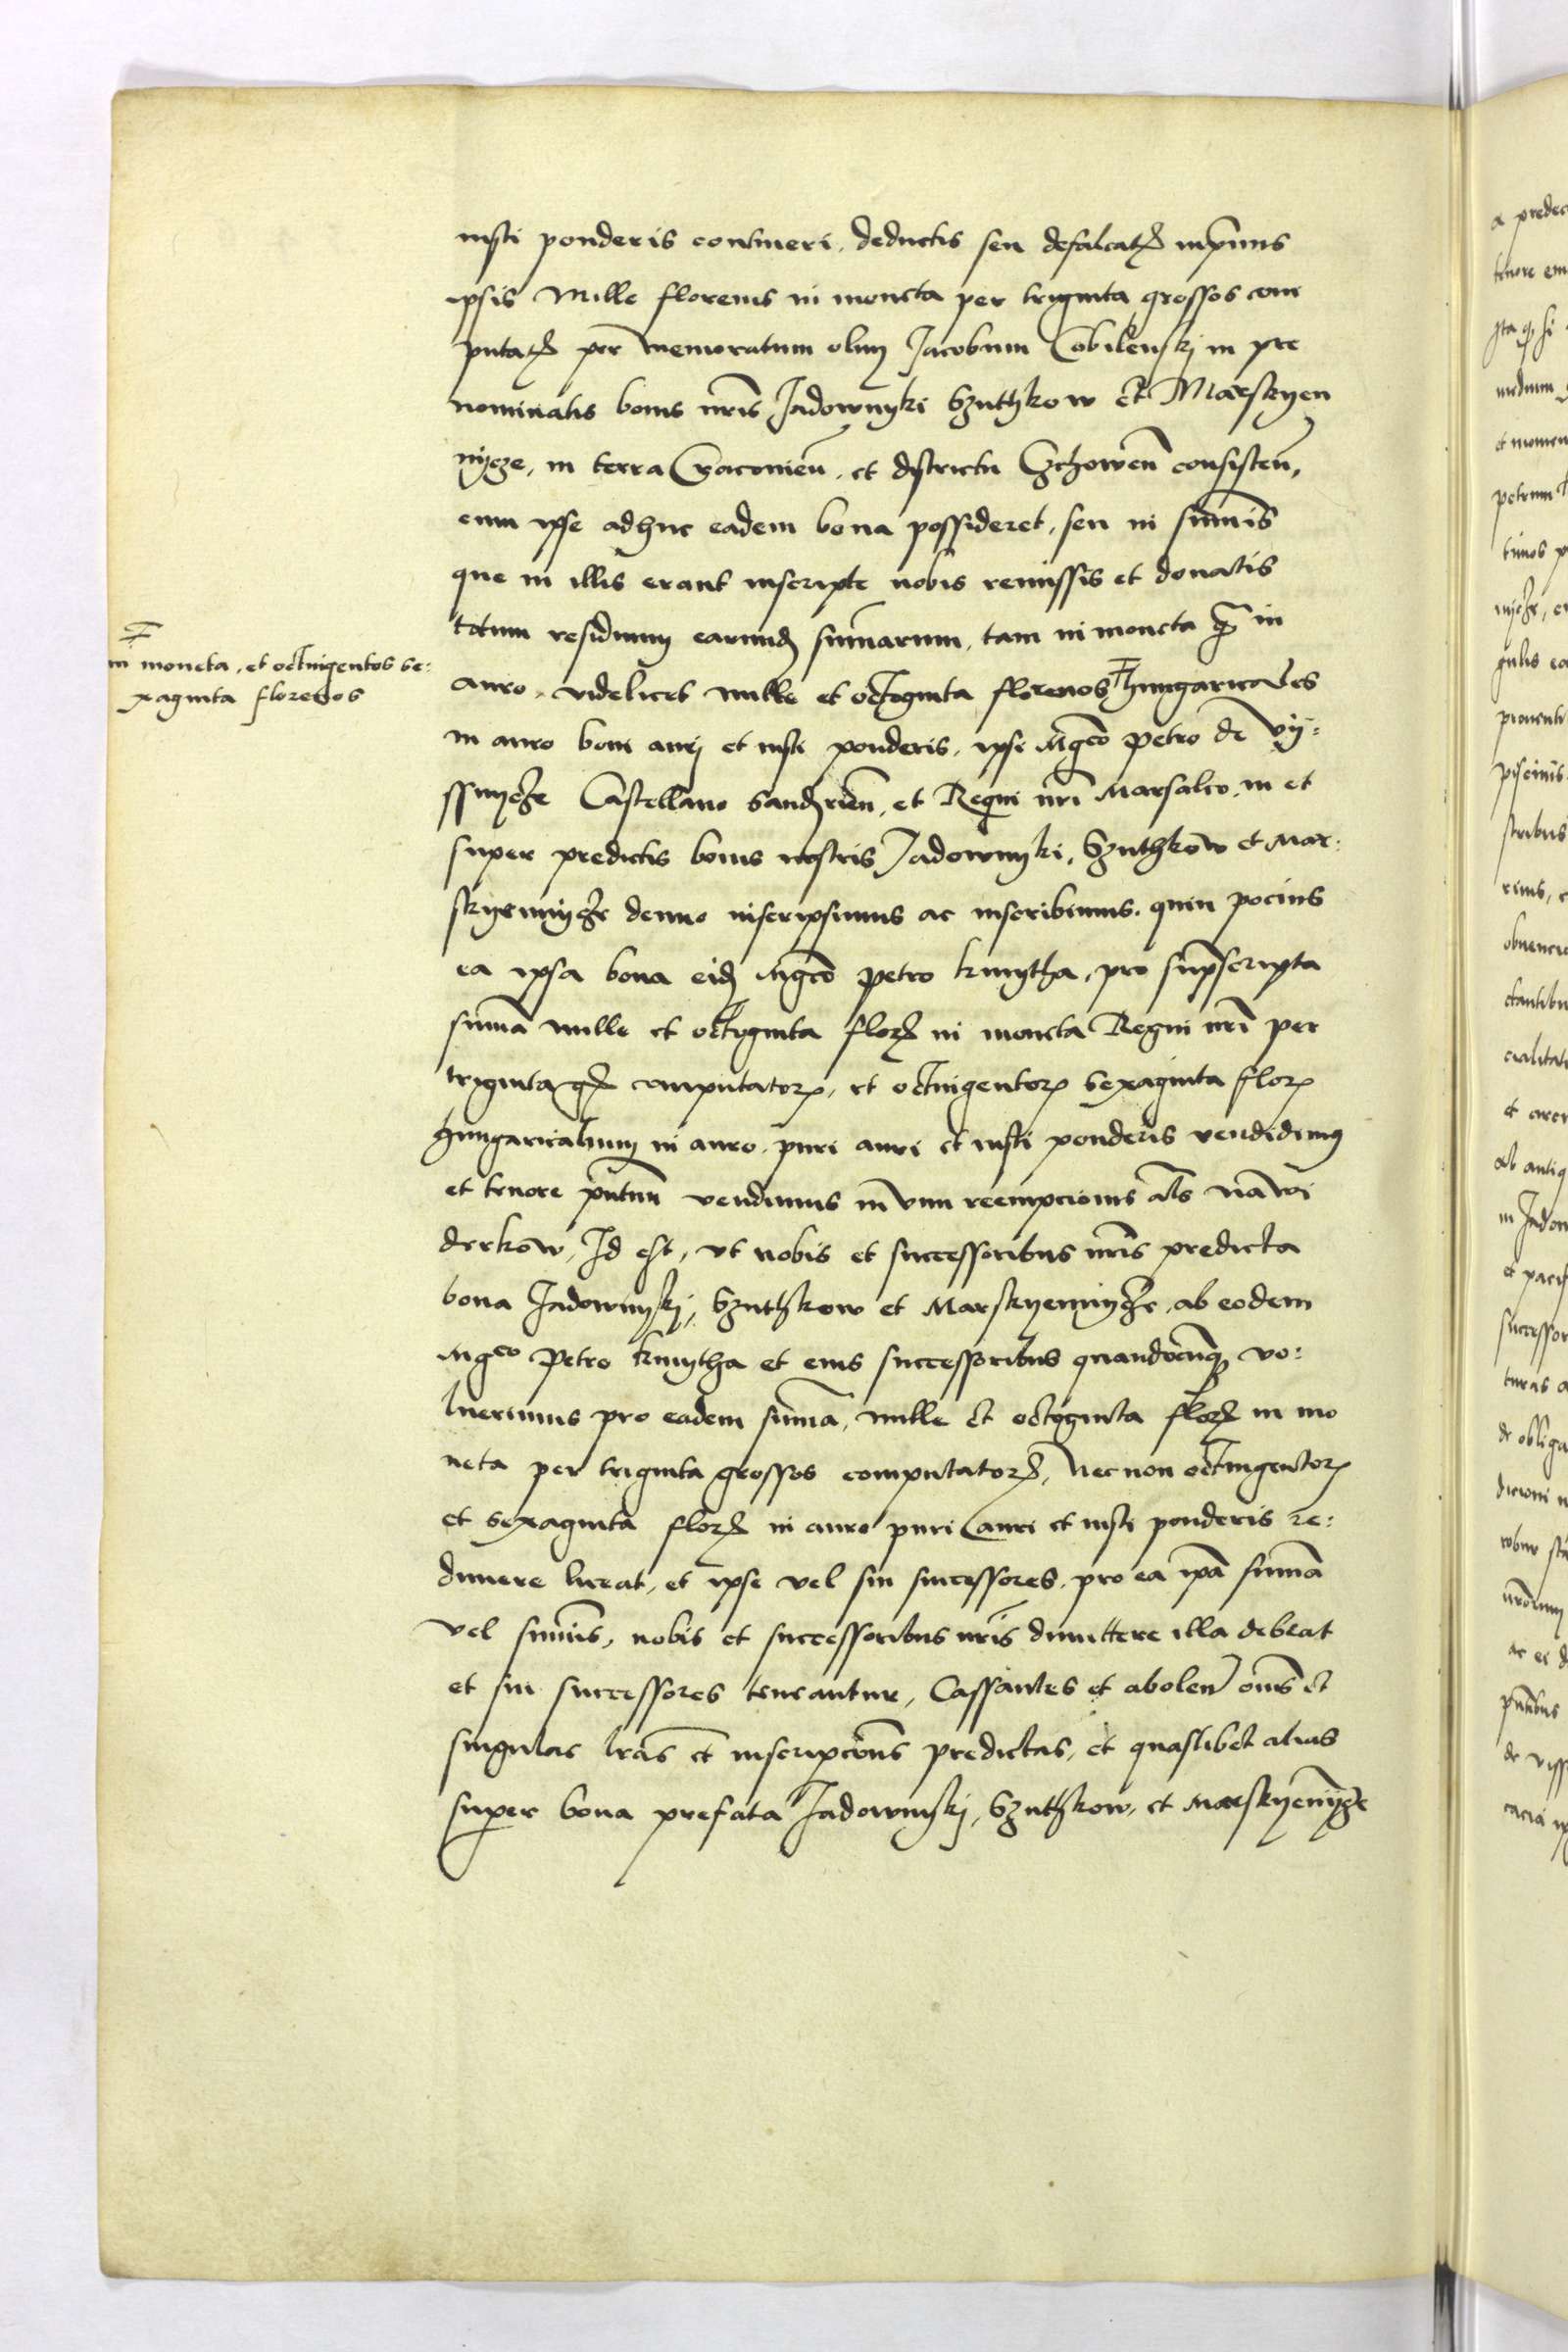 iusti ponderis contineri, deductis seu defalcat̄ inprimis
ipsis Mille florenis in moneta per triginta grossos com
putat̄ per memoratum olim Jacobum Cobilenskj in pre
nominatis bonis nr̄is Jadownyki Sznthkow et Marskyen
nycze, in terra Cracovien̄. et districtu Czchowen̄ consisten̄,
cum ipse adhuc eadem bona possideret, seu in sum̄is
que in illis erant inscripte nobis remissis et donatis
totum residuum earund̄ sum̄arum, tam in moneta q̄ in
auro, videlicet mille et octoginta florenos hungaricales
in auro boni aurj et iusti ponderis, ipsi Mgc̄o petro de Vy:
ssnycze Castellano Sandrien̄, et Regni nr̄i Marsalco, in et
super predictis bonis nostris Jadownyki, Sznthkow et Mar:
skyennycze denuo inscripsimus ac inscribimus. quin pocius
ea ipsa bona eid̄ Mgc̄o petro kmytha, pro sup̄scripta
sum̄a mille et octoginta flor̄ in moneta Regni nr̄i per
triginta gr̄ computator̄, et octingentor̄ sexaginta flor̄
hungaricalium in auro puri auri et iusti ponderis vendidimus
et tenore pn̄tium vendimus in vim reempcionis al̄s na wi
derkow, Id est, vt nobis et successoribus nr̄is predicta
bona Jadownyskj, Sznthkow et Marskyennycze, ab eodem
Mgco Petro kmytha et eius successoribus quandocunq̄ vo:
luerimus pro eadem sum̄a, mille et octoginta flor̄ in mo
neta per triginta grossos computator̄, Necnon octingentor̄
et sexaginta flor̄ in auro puri auri et iusti ponderis re:
dimere liceat, et ipse vel sui successores, pro ea ip̄a sum̄a
vel sum̄is, nobis et successoribus nr̄is dimittere illa debeat
et sui successores teneantur, Cassantes et abolen̄ om̄s et
singulas lr̄as et inscripcōns predictas, et quaslibet alias
super bona prefata Jadownskj, Sznthkow, et Marskyennycze
in moneta, et octingentos se:
xaginta florenos